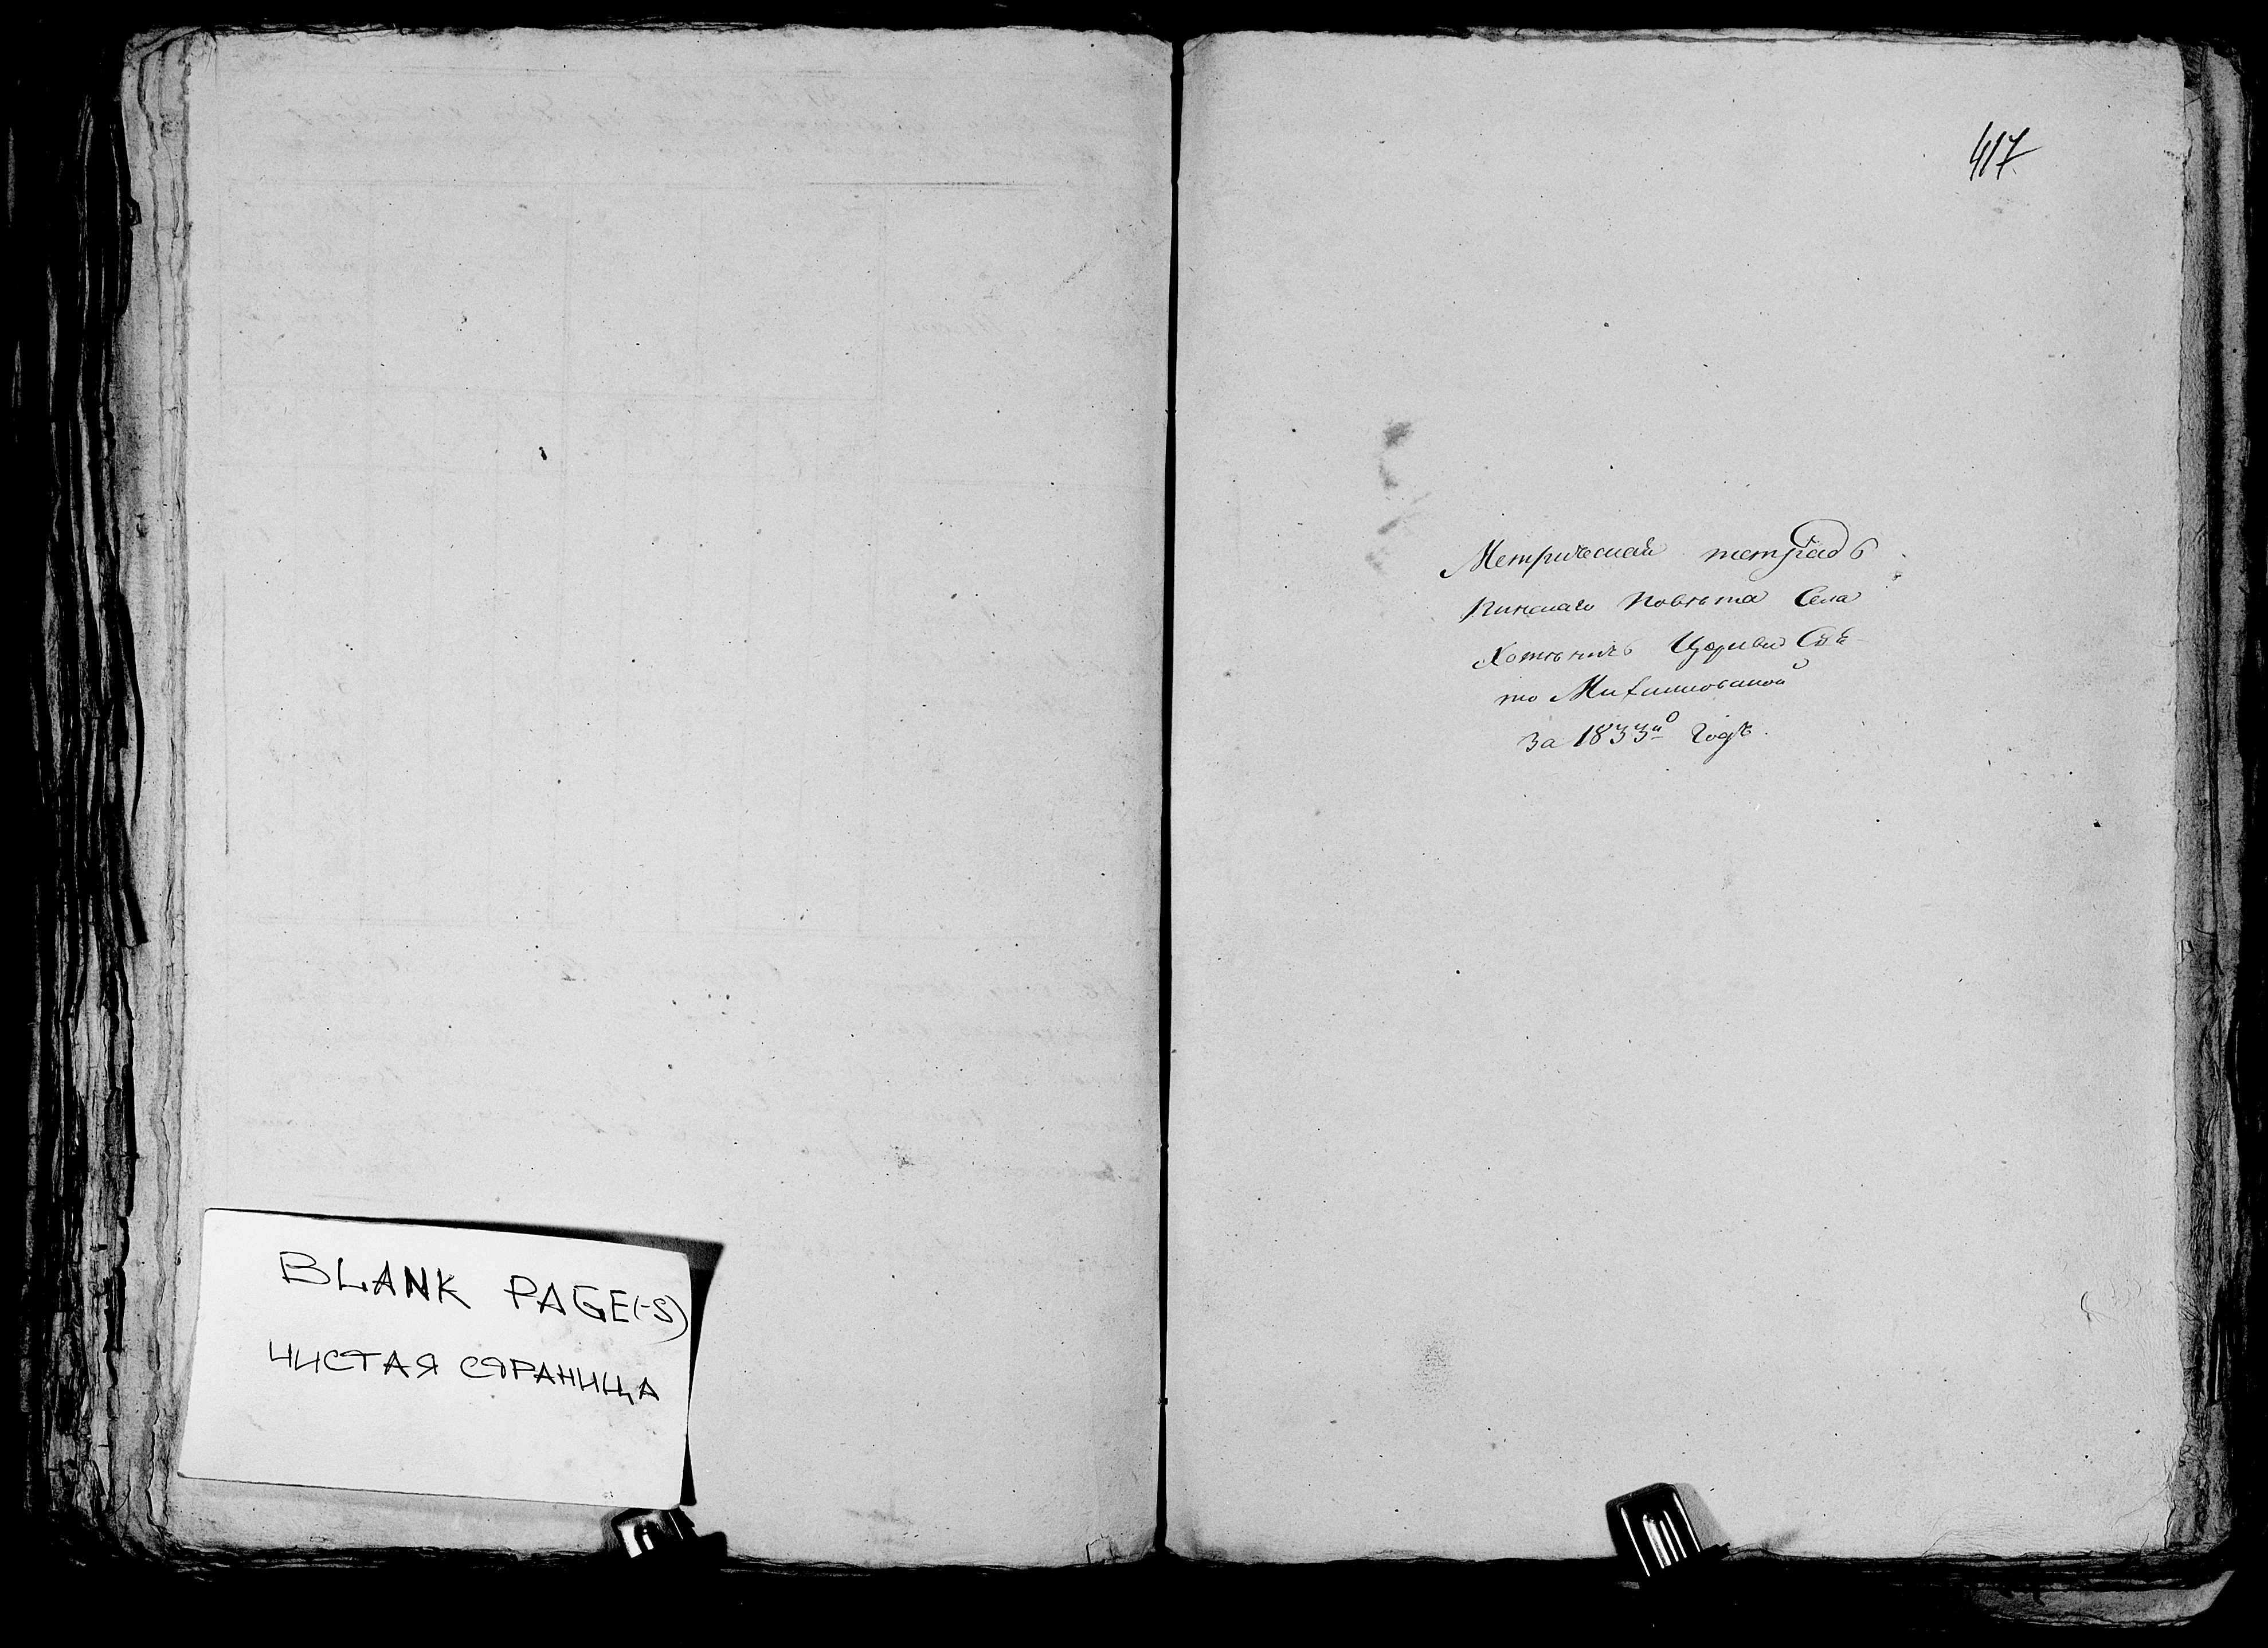 BLANK PAGE(-S)
ЧИСТАЯ СТРАНИЦА
417
Метрическая тетрадь
Пинскаго Повѣта Села
Хотыничъ Церкви Свя-
то Михайловской
За 1833й Годъ.